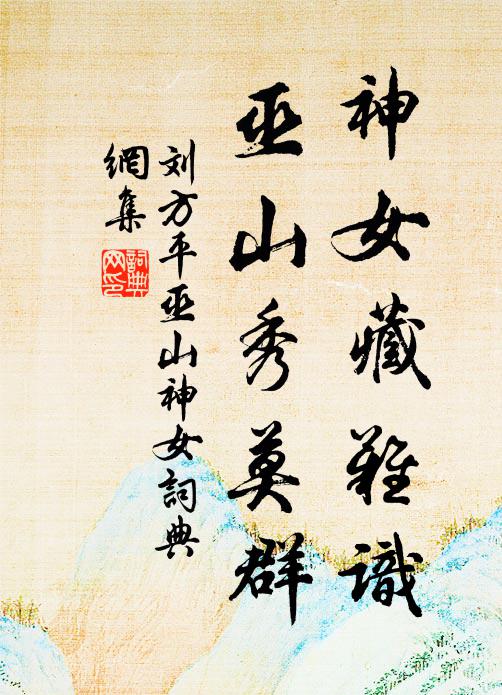 神女藏难識
巫山秀莫群
刘方平巫山神女詞典
網集
詞典网印